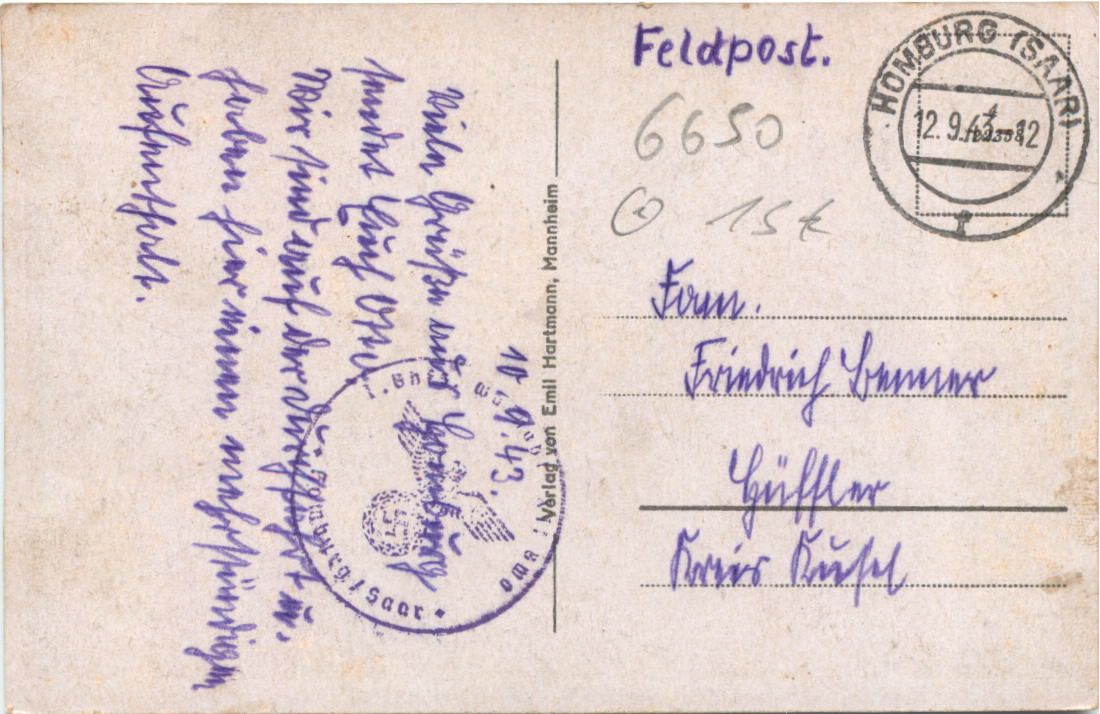 Feldpost.
HOMBURG (SAAR)
12.9.43-12
f
6650
15€
Fam.
Friedrich Benner
Hüffler
Kreis Kusel
Verlag von Emil Hartmann, Mannheim
10.9.43.
Viele Grüße aus Homburg
sendet Euch Otto.
Wir sind auf der Durchfahrt u.
haben hier einen mehrstündigen
Aufenthalt.